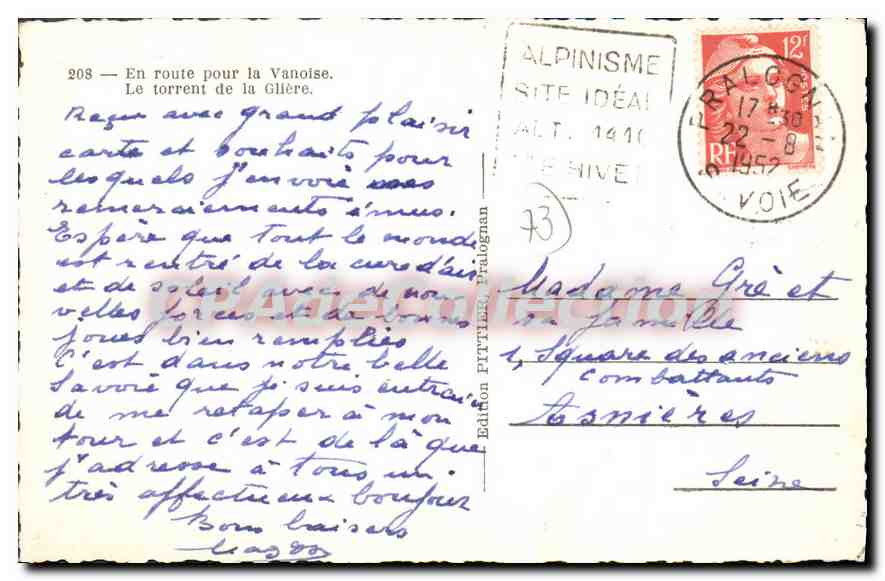 208 — En route pour la Vanoise.
Le torrent de la Glière.
Reçu avec grand plaisir
carte et souhaits pour
lesquels j'envoie mes
remerciements émus.
Espère que tout le monde
est rentré de la cure d'air
et de soleil avec de nou
velles forces et de bonnes
joues bien remplies
C'est dans notre belle
Savoie que je suis entrain
de me retaper à mon
tour et c'est de là que
j'adresse à tous un
très affectueux bonjour
Bons baisers
Edition PITTIER, Pralognan
ALPINISME
SITE IDÉAL
ALT. 1410
ÉTÉ HIVER
12F
POSTES
RF
PRALOGNAN
17 H 30
22 - 8
1952
VOIE
73
Madame Gré et
sa famille
1, Square des anciens
combattants
Asnières
Seine
CPAdeCollection